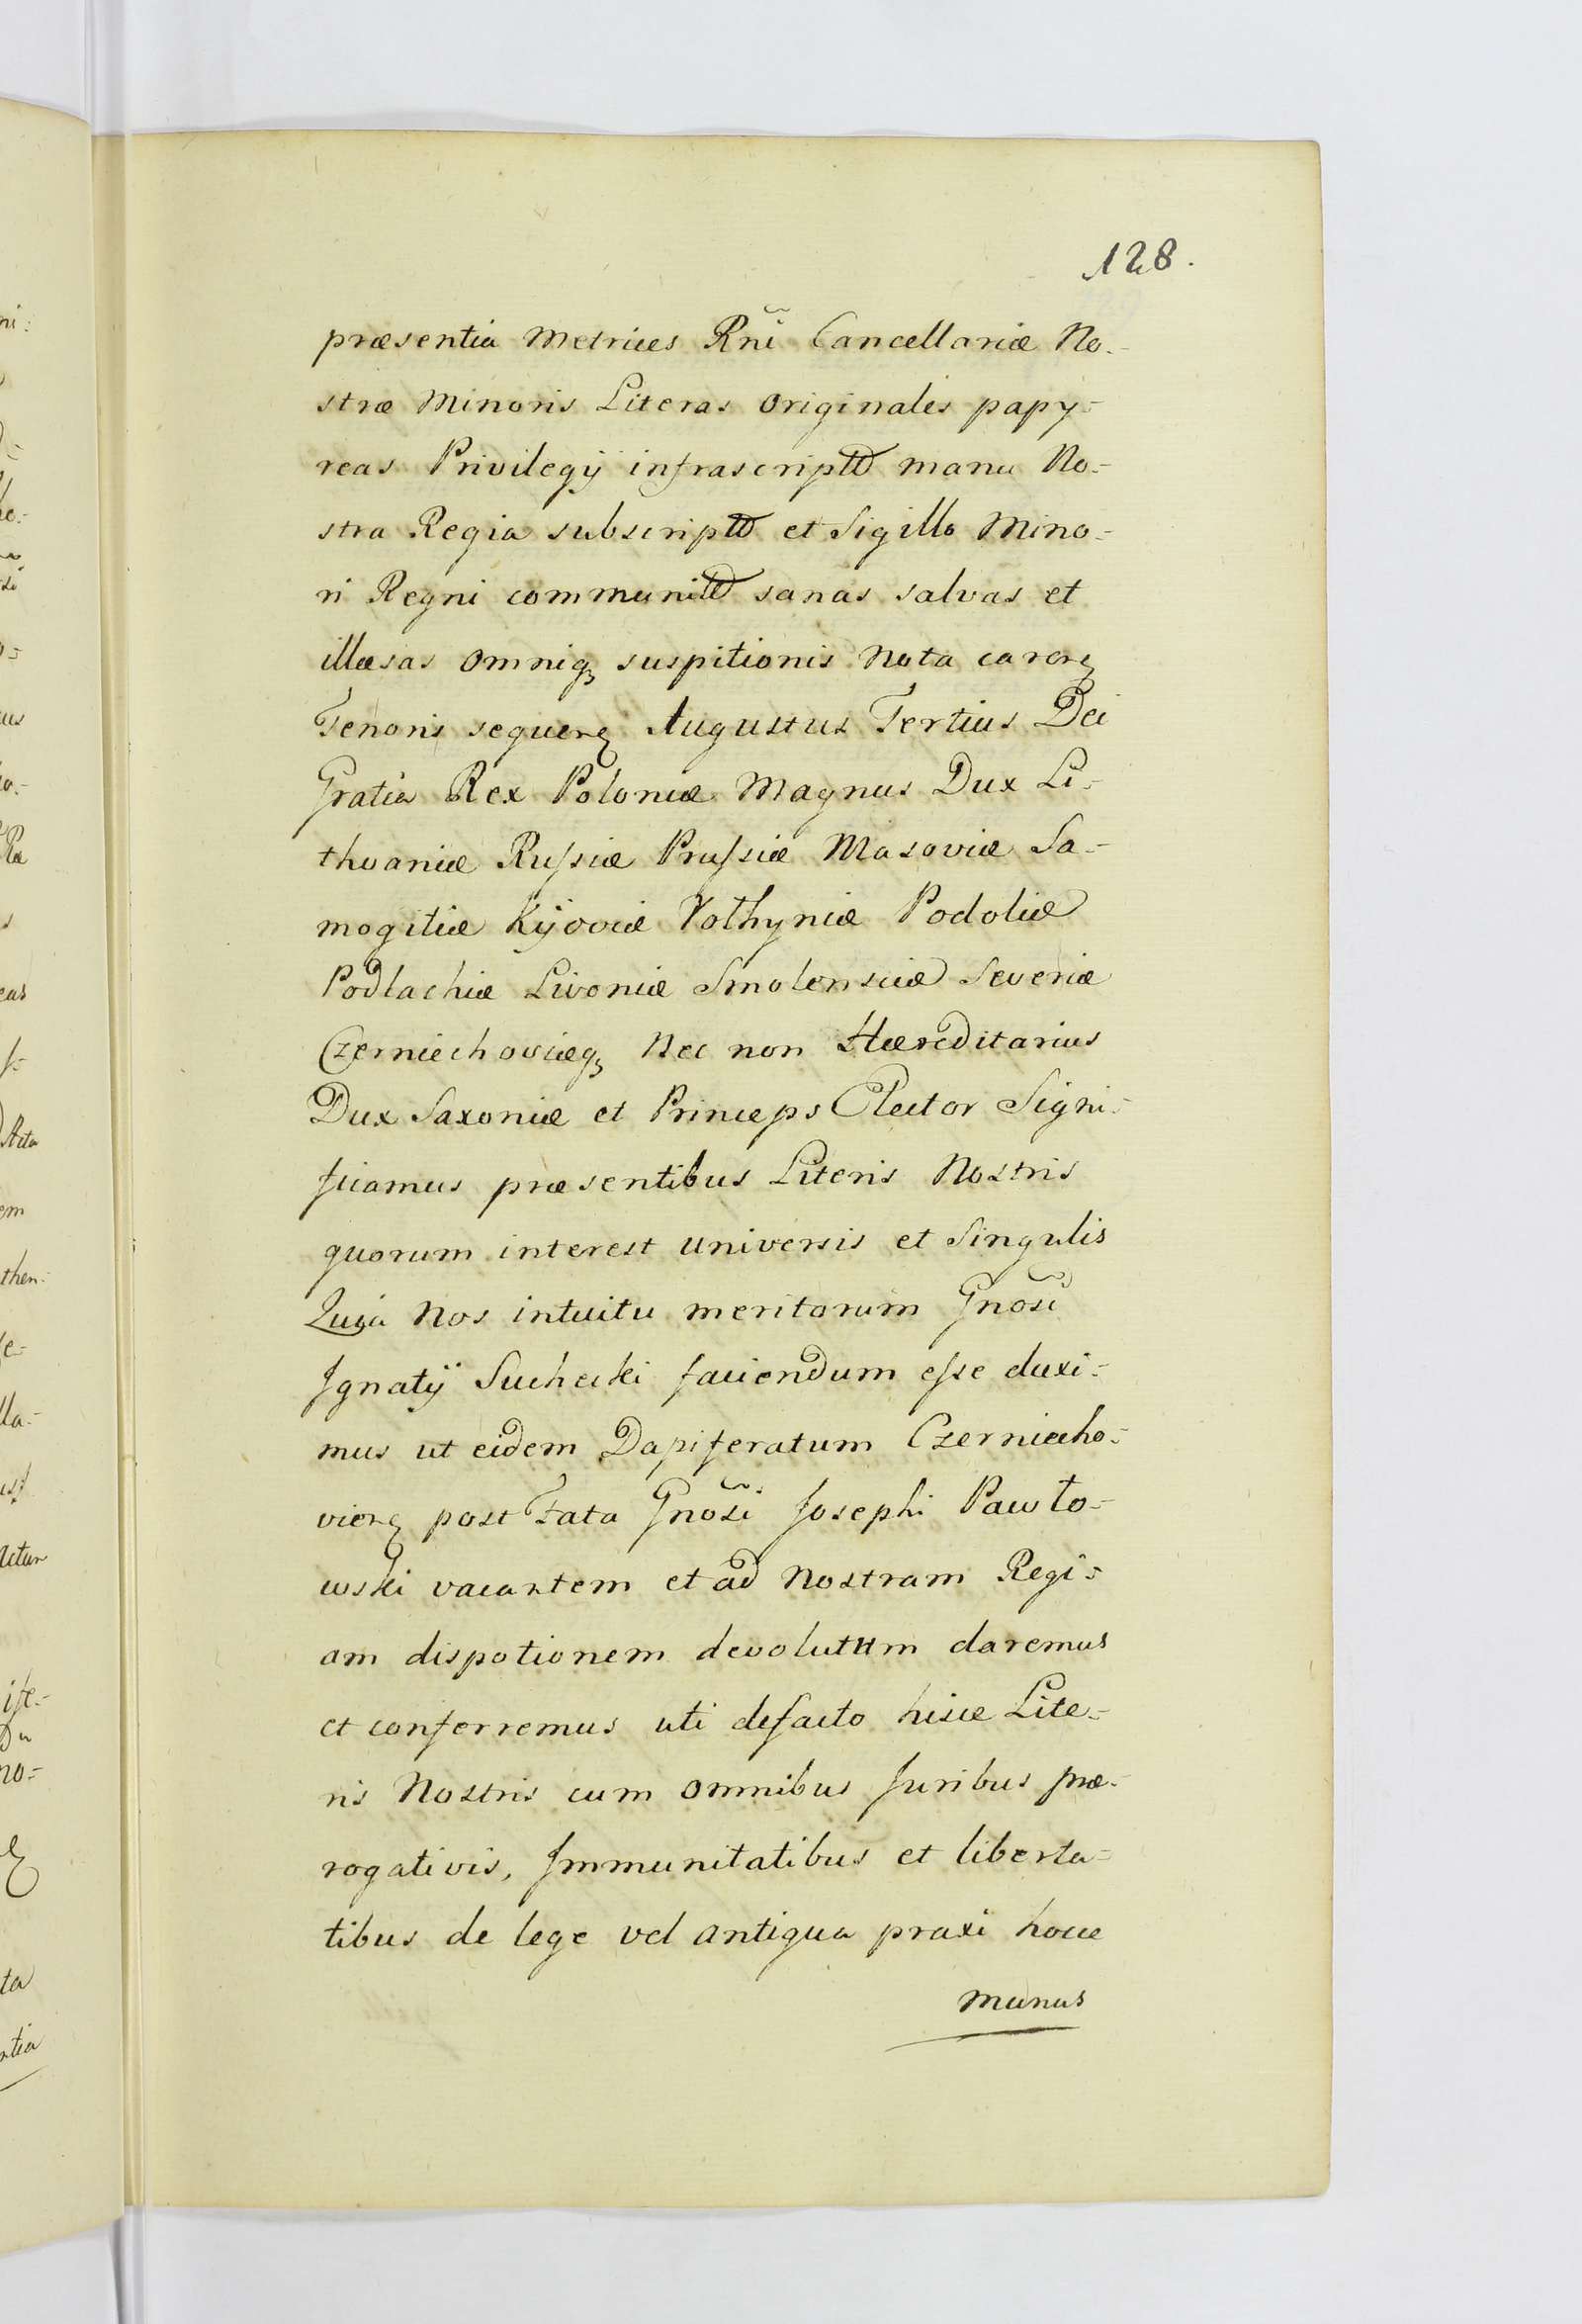 128.
præsentia Metrices Rni Cancellariæ No-
stræ Minoris Literas Originales papy-
reas Privilegÿ infrascriptt manu No-
stra Regia subscriptt et Sigillo Mino-
ri Regni communitt sanas salvas et
illæsas omniq suspitionis Nota caren
Tenoris sequen Augustus Tertius Dei
Gratia Rex Poloniæ Magnus Dux Li-
thvaniæ Russiæ Prussiæ Masoviæ Sa-
mogitiæ Kÿoviæ Volhyniæ Podoliæ
Podlachiæ Livoniæ Smolensciæ Severiæ
Czerniechoviæq Nec non Hæreditarius
Dux Saxoniæ et Princeps Elector Signi-
ficamus præsentibus Literis Nostris
quorum interest universis et Singulis
Quia Nos intuitu meritorum Gnosi
Ignatÿ Suchecki faciendum esse duxi-
mus ut eidem Dapiferatum Czerniecho-
vien post Fata Gnosi Josephi Pawło-
wski vacantem et ad Nostram Regi-
am dispotionem devolutum daremus
et conferremus uti defacto hisce Lite-
ris Nostris cum omnibus Juribus præ-
rogativis, Immunitatibus et liberta-
tibus de lege vel antiqua praxi hocce
munus